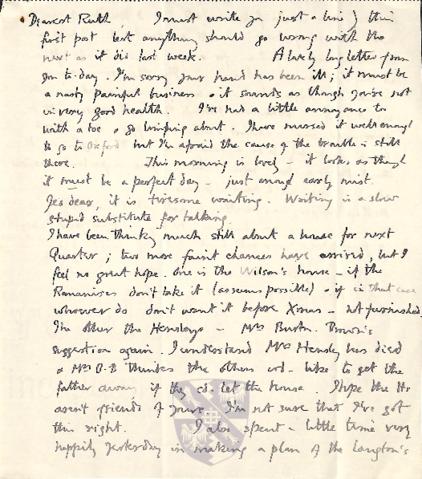 Dearest Ruth, I must write you just a line by this
first post lest anything should go wrong with the
next as it did last week. A lovely long letter from
you to-day. I'm sorry your hand has been ill; it must be
a nasty painful business & it sounds as though you're not
in very good health. I've had a little annoyance too
with a toe & go limping about. I have nursed it well enough
to go to Oxford but I'm afraid the cause of the trouble is still
there. This morning is lovely – it looks as though
it must be a perfect day – just enough early mist.
Yes dear, it is tiresome waiting. Writing is a slow
stupid substitute for talking.
I have been thinking much still about a house for next
Quarter; two more faint chances have arrived, but I
feel no great hope. One is the Wilson's house – if the
don't take it (as seems possible) & if in that case
whoever do don't want it before Xmas – not furnished.
The other the – Mrs Brown's
suggestion again. I understand Mrs has died
& Mrs O-B thinks the others wd. like to get the
father away if they cd. let the house. I hope the Hs
aren't friends of yours. I'm not sure that I've got
this right. I also spent a little time very
happily yesterday in making a plan of the Langton's